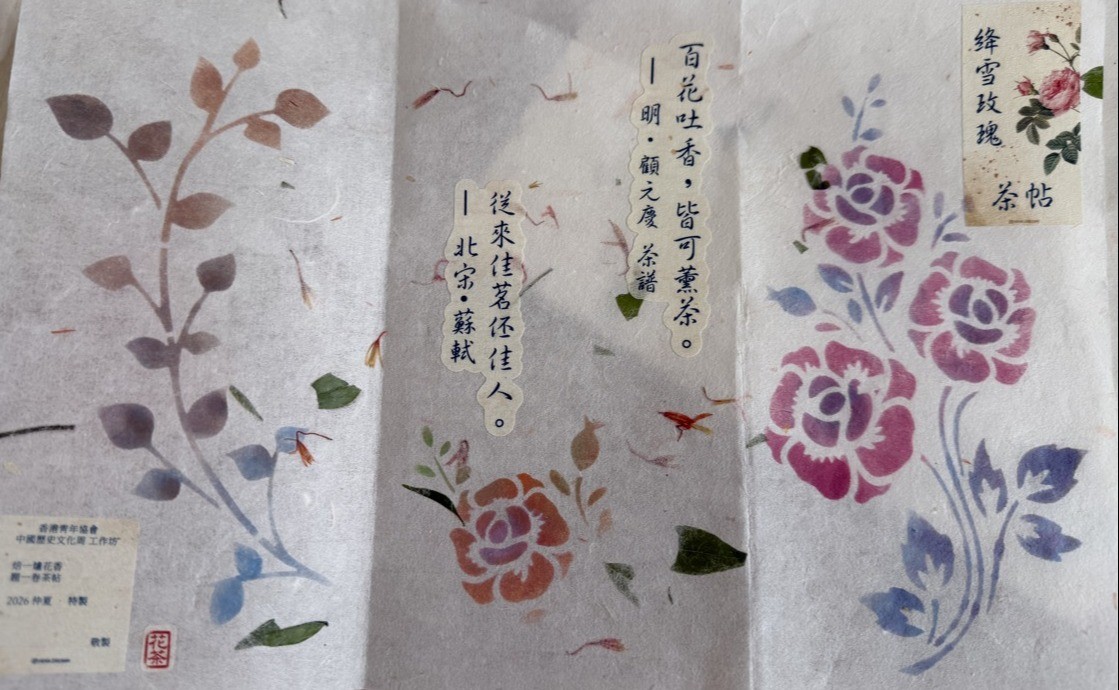 絳雪玫瑰
茶帖
百花吐香，皆可薰茶。
— 明・顧元慶 茶譜
從來佳茗伾佳人。
— 北宋・蘇軾
香港青年協會
中國歷史文化周 工作坊
焙一爐花香
題一卷茶帖
2026 仲夏 · 特製
敬製
花茶